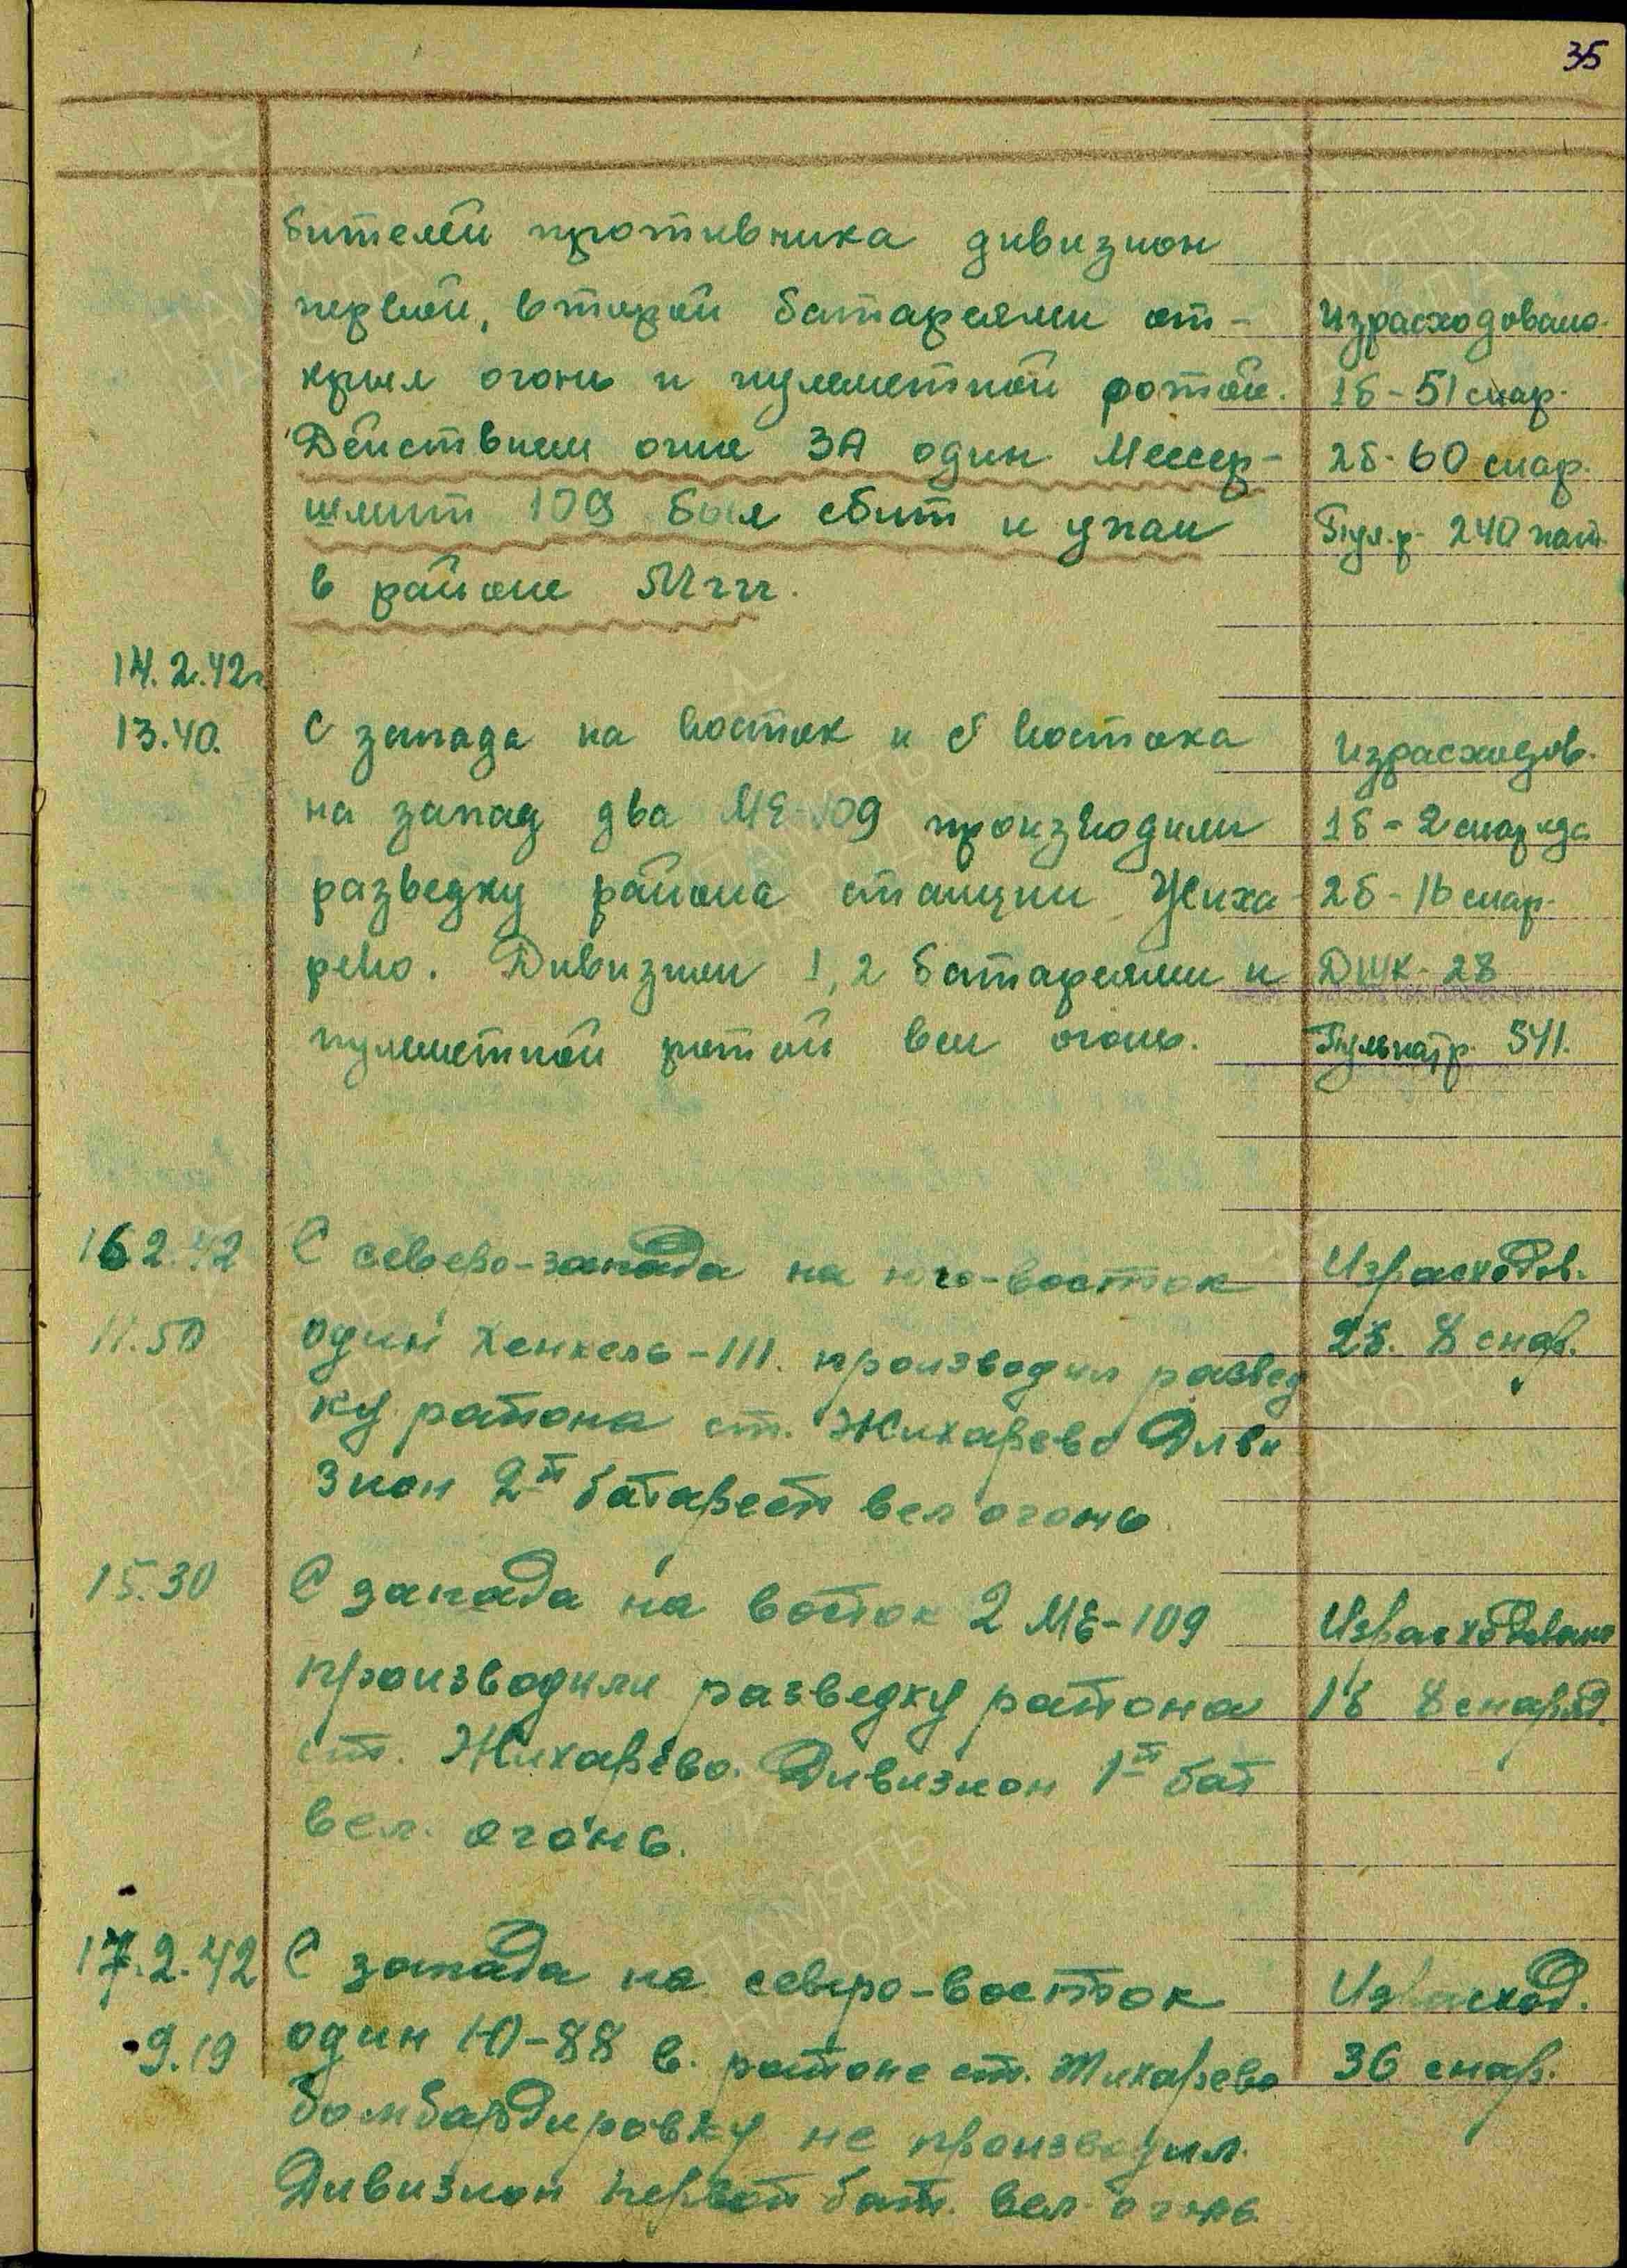 35
бителей противника дивизион
первой, второй батареями от-
крыл огонь и пулеметной ротой.
Действием огня ЗА один Мессер-
шмит 109 был сбит и упал
в районе
Израсходовано.
1б - 51 снар.
2б - 60 снар.
Пул.р. 240 пат.
14.2.42г.
13.40.
С запада на восток и с востока
на запад два МЕ-109 производили
разведку района станции Жиха-
рево. Дивизион 1, 2 батареями и
пулеметной ротой вел огонь.
Израсходов.
1б - 2 снаряда
2б - 16 снар.
ДШК - 28
Пульпатр. 541.
16.2.42
11.50
С северо-запада на юго-восток
один Хенкель-111. производил развед
ку района ст. Жихарево Диви
зион 2й батареей вел огонь
Израсходов.
2б. 8 снар.
15.30
С запада на восток 2 МЕ-109
производили разведку района
ст. Жихарево. Дивизион 1й бат
вел. огонь.
Израсходовано
1б 8 снаряд.
17.2.42
9.19
С запада на северо-восток
один Ю-88 в. районе ст. Жихарево
бомбардировку не производил.
Дивизион первой бат. вел огонь
Израсход.
36 снар.
ПАМЯТЬ
НАРОДА